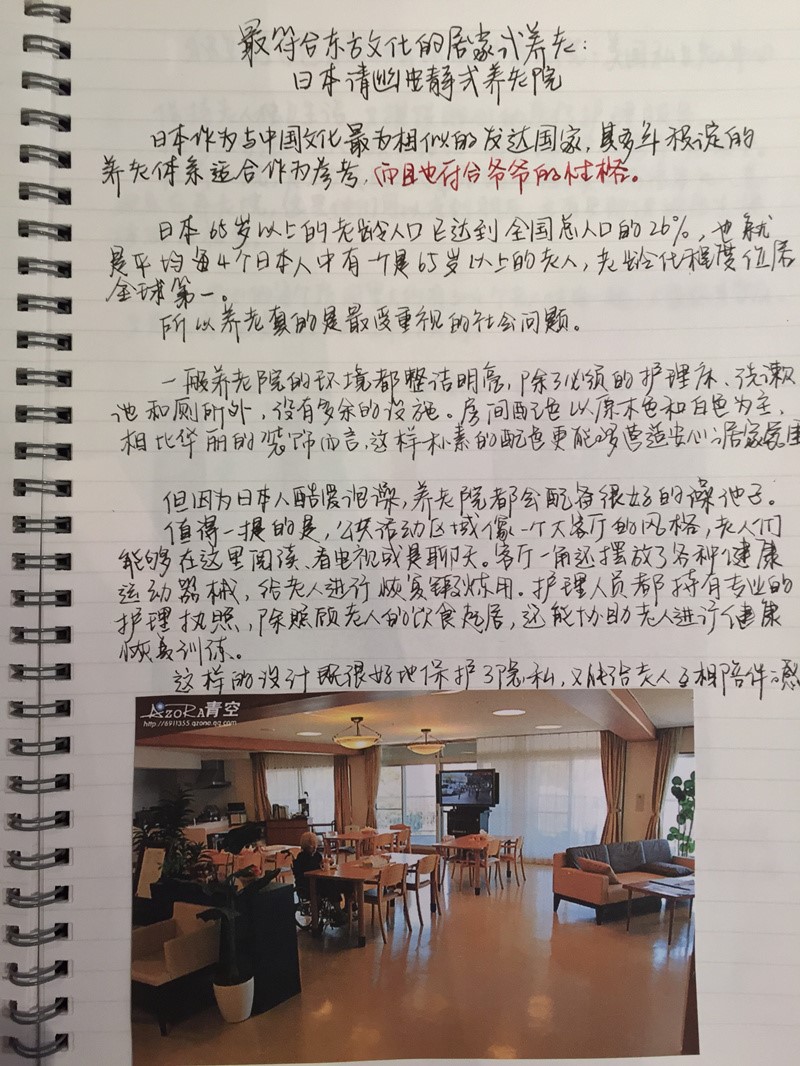 最符合东方文化的居家式养老：
日本清幽安静式养老院
日本作为与中国文化最为相似的发达国家，其多年积淀的
养老体系适合作为参考，而且也符合爷爷的性格。
日本65岁以上的老龄人口已达到全国总人口的26%，也就
是平均每4个日本人中有一个是65岁以上的老人，老龄化程度位居
全球第一。
所以养老真的是最受重视的社会问题。
一般养老院的环境都整洁明亮，除了必须的护理床、洗漱
池和厕所外，没有多余的设施。房间配色以原木色和白色为主，
相比华丽的装饰而言，这样朴素的配色更能够营造安心的居家氛围
但因为日本人酷爱泡澡，养老院都会配备很好的澡池子。
值得一提的是，公共活动区域像一个大客厅的风格，老人们
能够在这里阅读、看电视或是聊天。客厅一角还摆放了各种健康
运动器械，给老人进行恢复锻炼用。护理人员都持有专业的
护理执照，除照顾老人的饮食起居，还能协助老人进行健康
恢复训练。
这样的设计既很好地保护了隐私，又能给老人互相陪伴的感
AZORA青空
http://6911355.qzone.qq.com